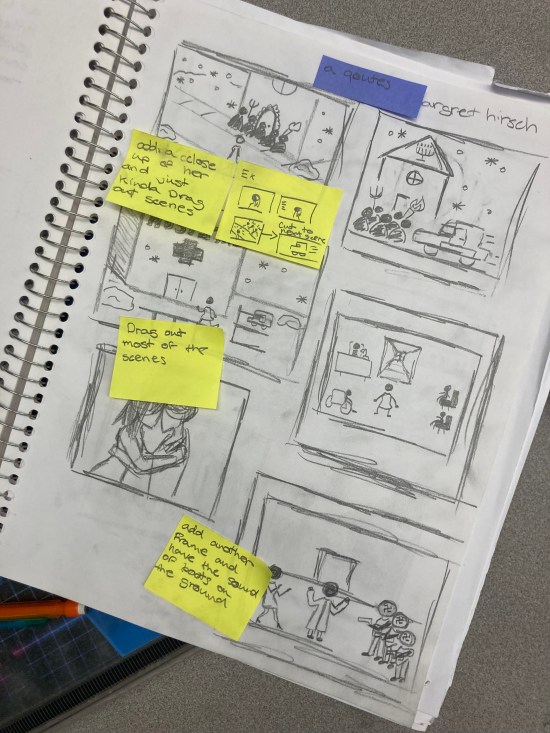 a qoutes
argret hirsch
add a cclose
up of her
and Just
Kinda Drag
out scenes
Ex
cut to
next scene
Drag out
most of the
scenes
add another
Frame and
have the sound
of boots on
the ground